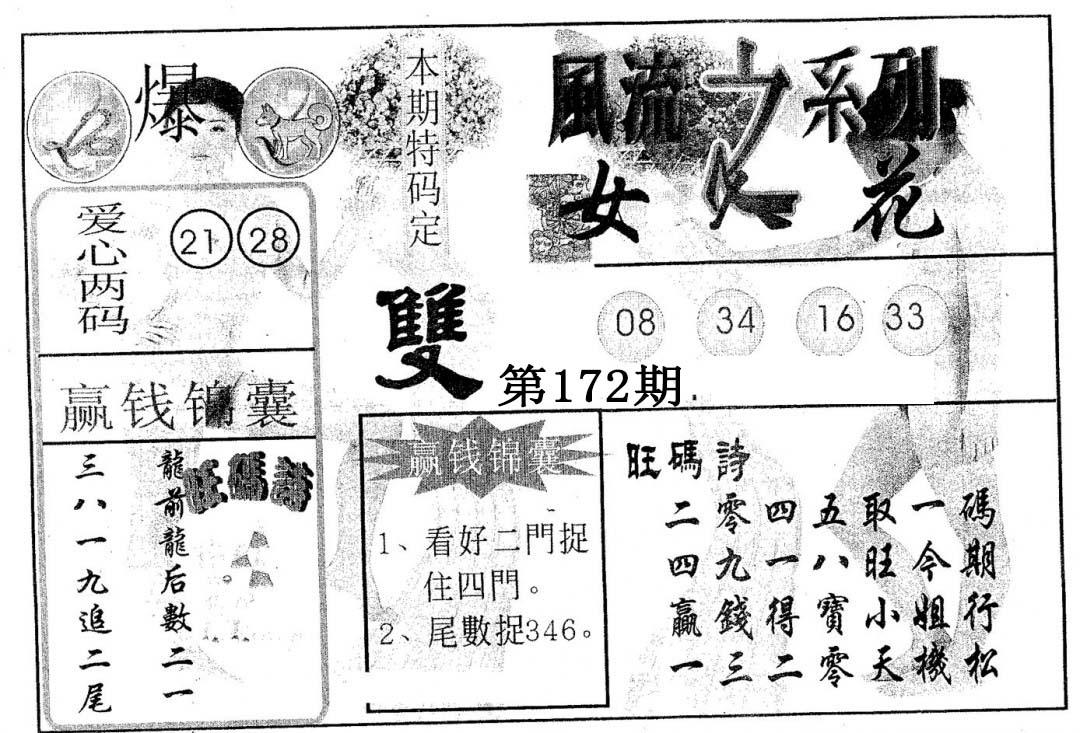 爆
本期特码定
雙
風流之系列
女人花
爱心两码
21 28
08 34 16 33
第172期
赢钱锦囊
旺碼詩
龍前龍后數二一
三八一九追二尾
赢钱锦囊
1、看好二門捉
住四門。
2、尾數捉346。
旺碼詩
碼期行松
一今姐機
取旺小天
五八寶零
四一得二
零九錢三
二四贏一